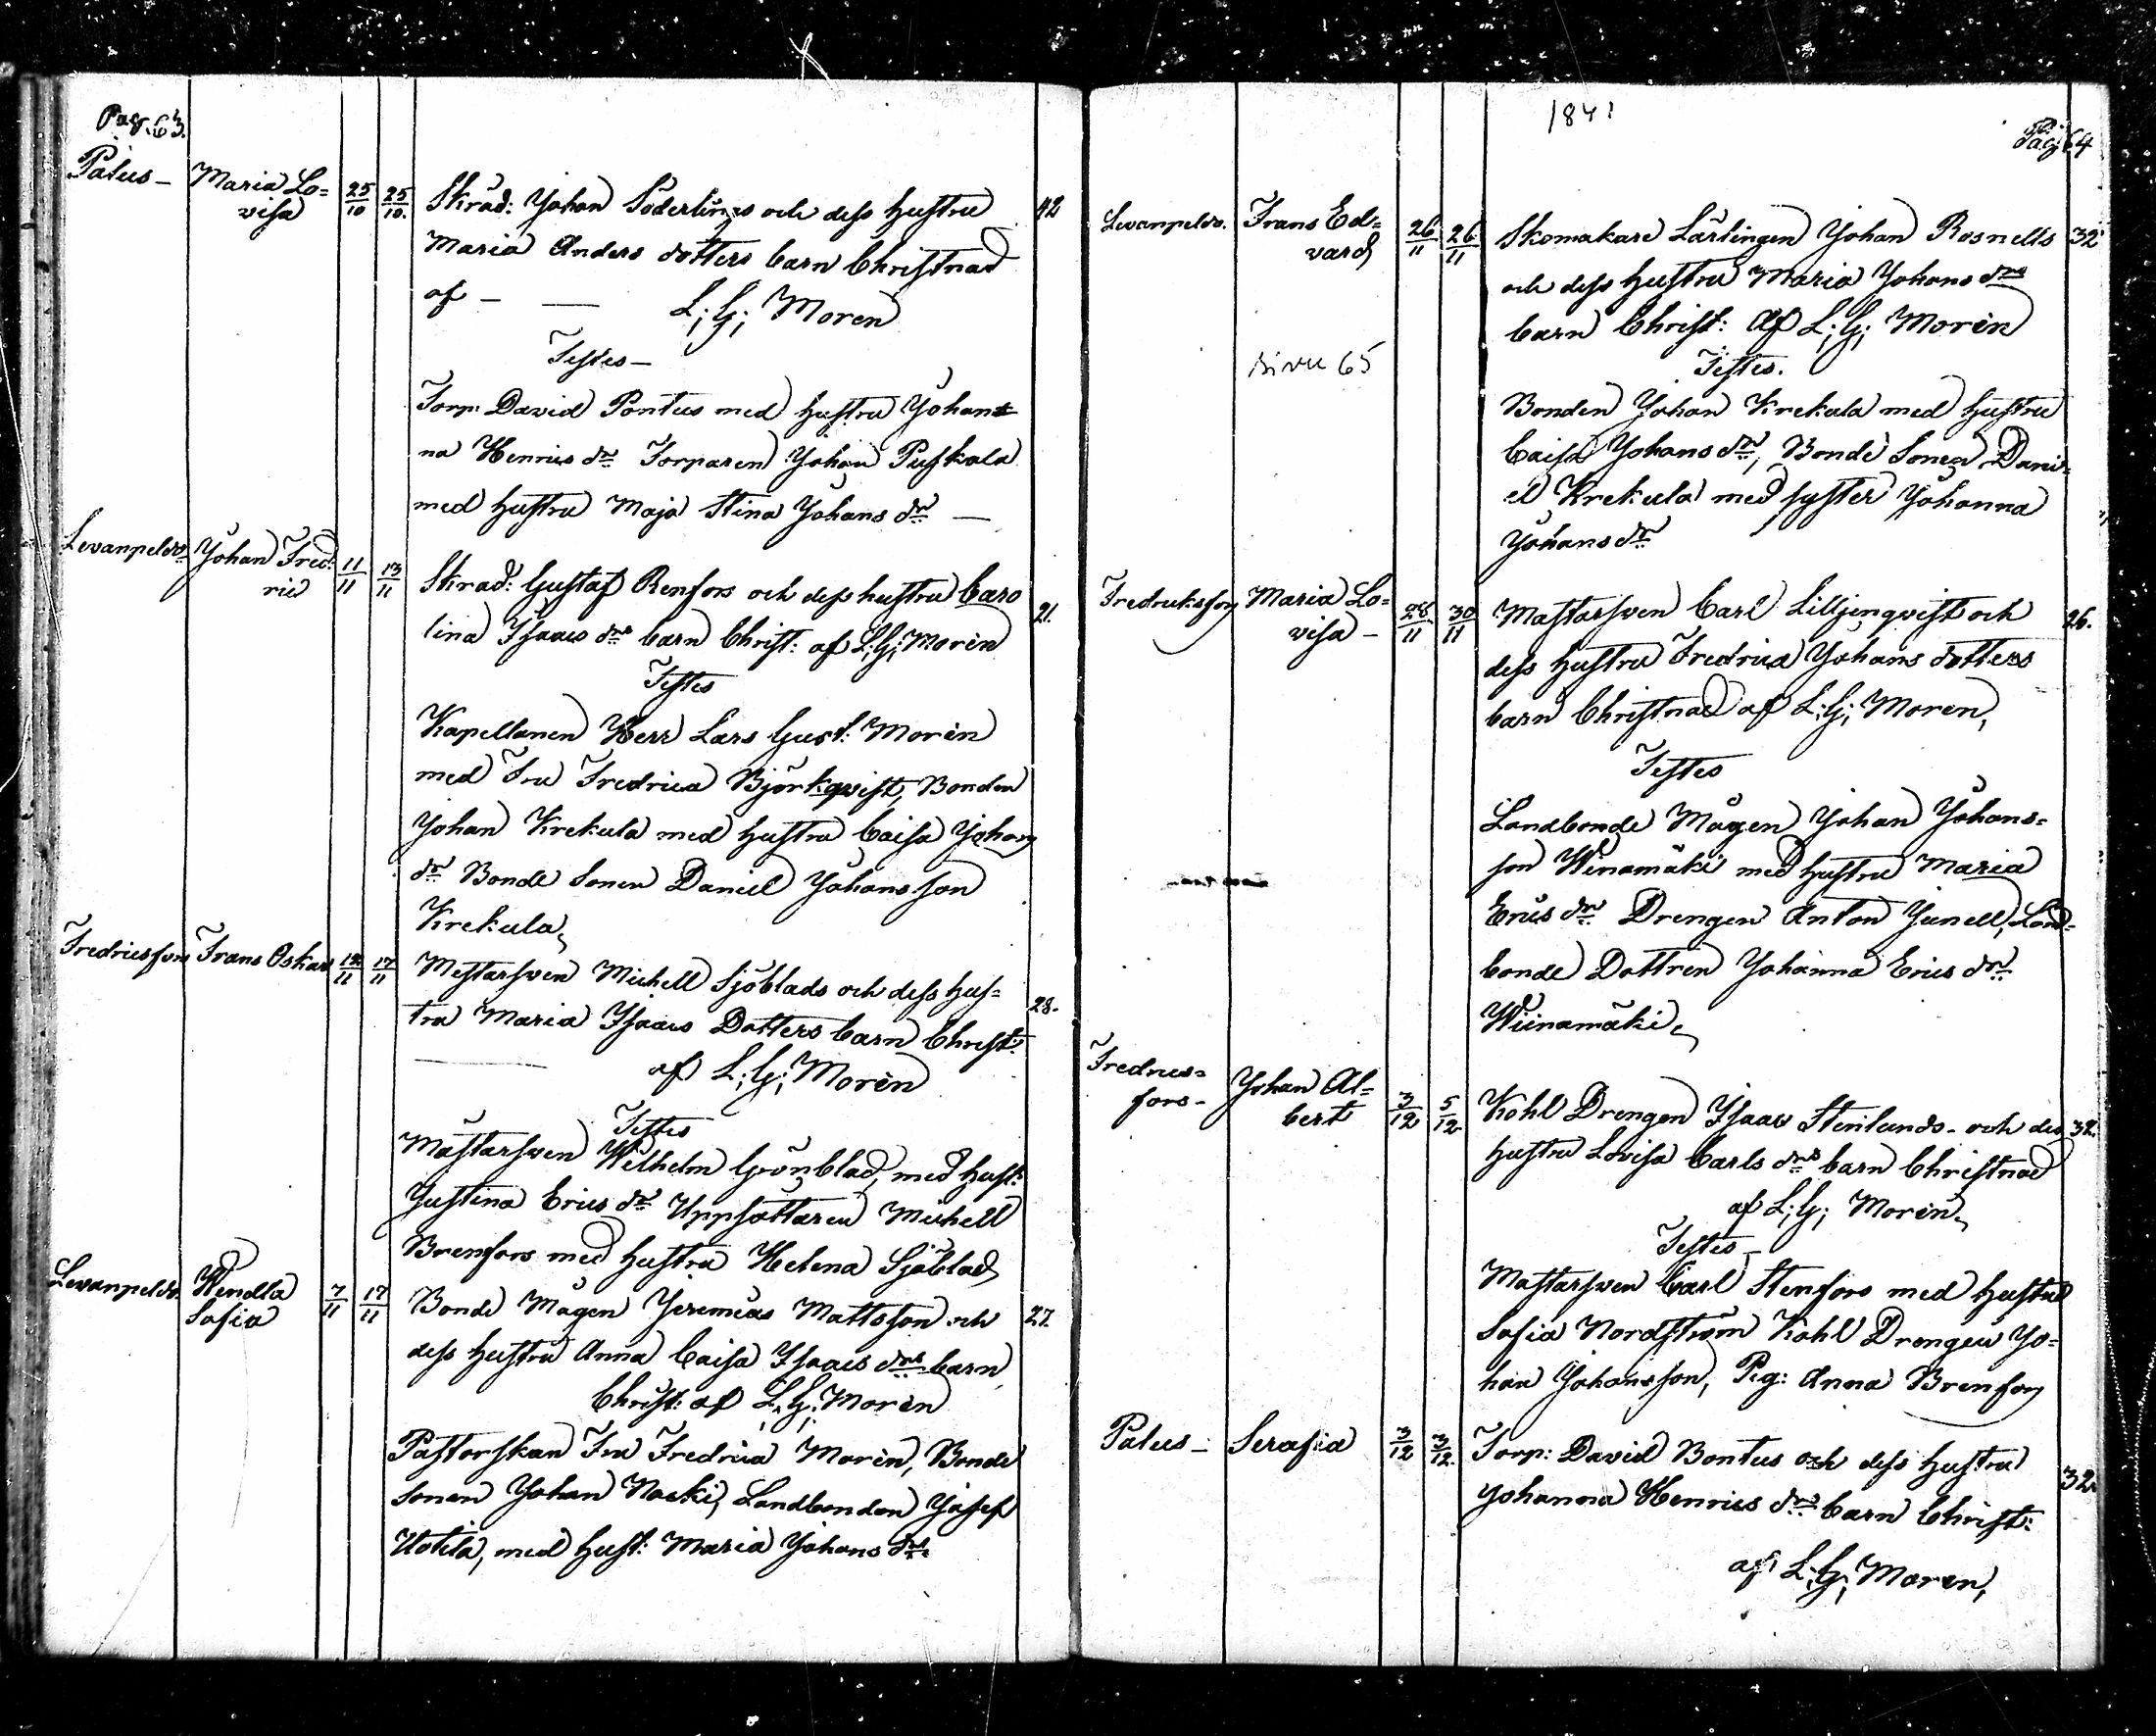 Pag. 63.
Palus — Maria Lo=
visa 25/10 25/10.
Skräd: Johan Söderlings och dess hustru 42
Maria Anders dotters barn Christnad
af — — L; G; Moren
Testes —
Torp: David Pontus med hustru Johan=
na Henrics dr Torparen Johan Puskala
med hustru Maja Stina Johans dr —
Levanpelds Johan Fred=
ric 11/11 13/11
Skräd: Gustaf Renfors och dess hustru Caro
lina Isaacs drs barn Christ: af L; G; Morén 21.
Testes
Kapellanen Herr Lars Gust: Morén
med Fru Fredrica Björkqvist, Bonden
Johan Krekula med hustru Caisa Johans
dr Bonde Sonen Daniel Johansson
Krekula,
Fredricsfors Frans Oskar 12/11 17/11
Mestarsven Michell Sjöblads och dess hus=
tru Maria Isaacs Dotters barn Christ: 28.
af L; G; Morén
Testes
Mästarsven Wilhelm Grönblad, med hust:
Justina Erics dr Uppsättaren Michell
Brenfors med hustru Helena Sjöblad,
Levanpelds. Wendla
Sofia 7/11 17/11
Bonde Mågen Jeremias Mattsson och 27.
dess hustru Anna Caisa Isaacs drs barn
Christ: af L; G; Morén
Pastorskan Fru Fredrica Morén, Bonde
Sonen Johan Noeki, Landbonden Josef
Uotila, med hust: Maria Johans dr.
1841
Pag 64
Levanpelds. Frans Ed=
vard 26/11 26/11
Skomakare Lärlingen Johan Rosnells 32
och dess hustru Maria Johans drs
barn Christ: af L; G; Morén
Testes.
sivu 65
Bonden Johan Krekula med hustru
Caisa Johans dr, Bonde Sonen Dani=
el Krekula med syster Johanna
Johans dr
Fredricksfors Maria Lo=
visa — 28/11 30/11
Mästarsven Carl Liljenqvist och 26.
dess hustru Fredrica Johans dotters
barn Christnad af L; G; Moren,
Testes
Landbonde Mågen Johan Johans=
son Winamäki med hustru Maria
Erics dr Drengen Anton Junell, Land=
bonde Dottren Johanna Erics dr
Wiinamäki,
Fredrics=
fors — Johan Al=
bert 3/12 5/12
Kohl Drengen Isaac Stenlunds och des 32.
hustru Lovisa Carls drs barn Christnad
af L; G; Morén,
Testes —
Mästarsven Carl Stenfors med hustru
Sofia Nordström Kohl Drengen Jo=
han Johansson, Pig: Anna Brenfors
Palus — Serafia 3/12 3/12.
Torp: David Bontus och dess hustru
Johanna Henrics drs barn Christ: 32.
af L; G; Moren,